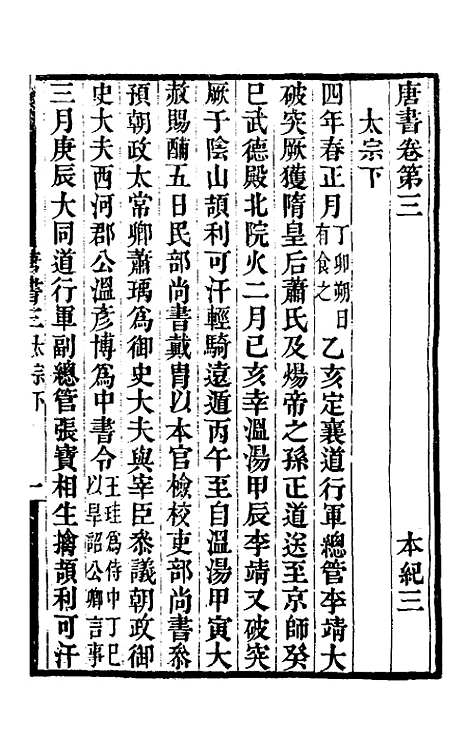 唐書卷第三　　　　　　　　　　本紀三
太宗下
四年春正月丁卯朔日有食之乙亥定襄道行軍總管李靖大
破突厥獲隋皇后蕭氏及煬帝之孫正道送至京師癸
巳武德殿北院火二月己亥幸溫湯甲辰李靖又破突
厥于陰山頡利可汗輕騎遠遁丙午至自溫湯甲寅大
赦賜酺五日民部尚書戴冑以本官檢校吏部尚書叅
預朝政太常卿蕭瑀爲御史大夫與宰臣叅議朝政御
史大夫西河郡公溫彥博爲中書令王珪爲侍中丁巳以旱詔公卿言事
三月庚辰大同道行軍副總管張寶相生擒頡利可汗
唐書三 太宗下
一